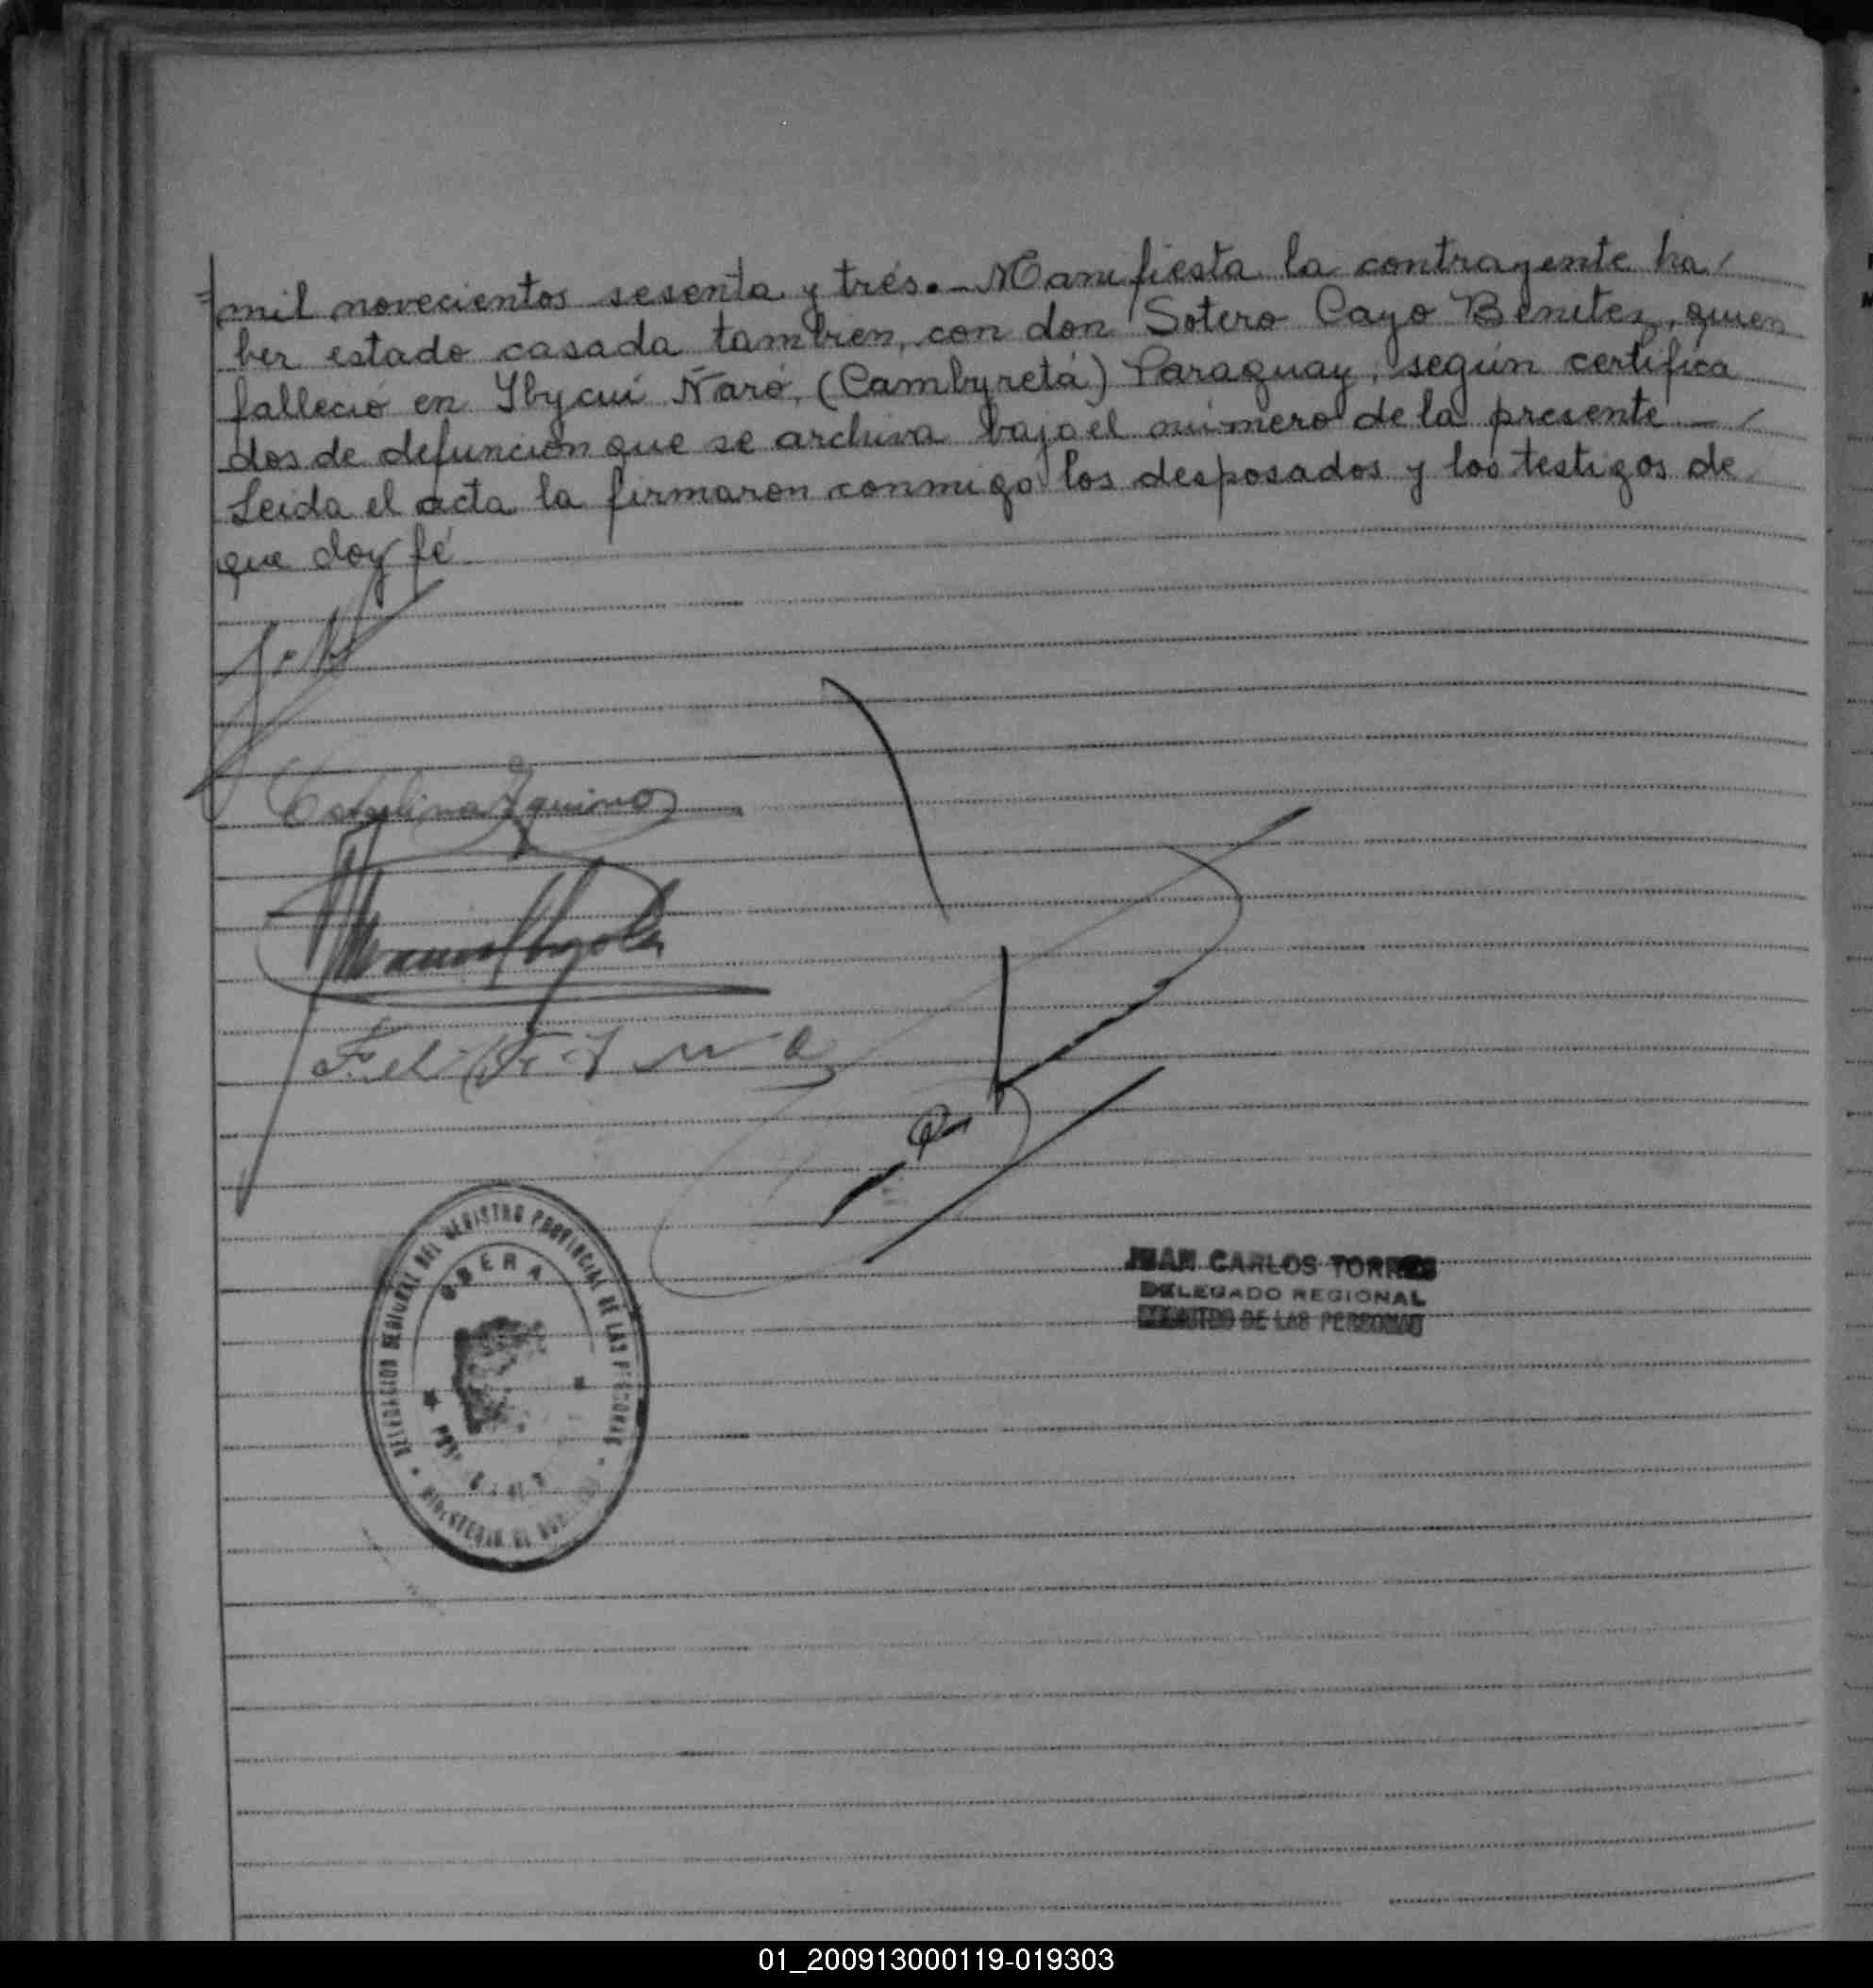 mil novecientos sesenta y trés.- Manifiesta la contrayente ha/
ber estado casada tambien, con don Sotero Cayo Benitez, quien
falleció en Ybycuí Ñaró, (Cambyretá) Paraguay, según certifica
dos de defunción que se archiva bajo el número de la presente - /
Leida el acta la firmaron conmigo los desposados y los testigos de
que doy fé
DELEGACION REGIONAL DEL REGISTRO PROVINCIAL DE LAS PERSONAS
OBERA
JUAN CARLOS TORRES
DELEGADO REGIONAL
REGISTRO DE LAS PERSONAS
01_200913000119-019303